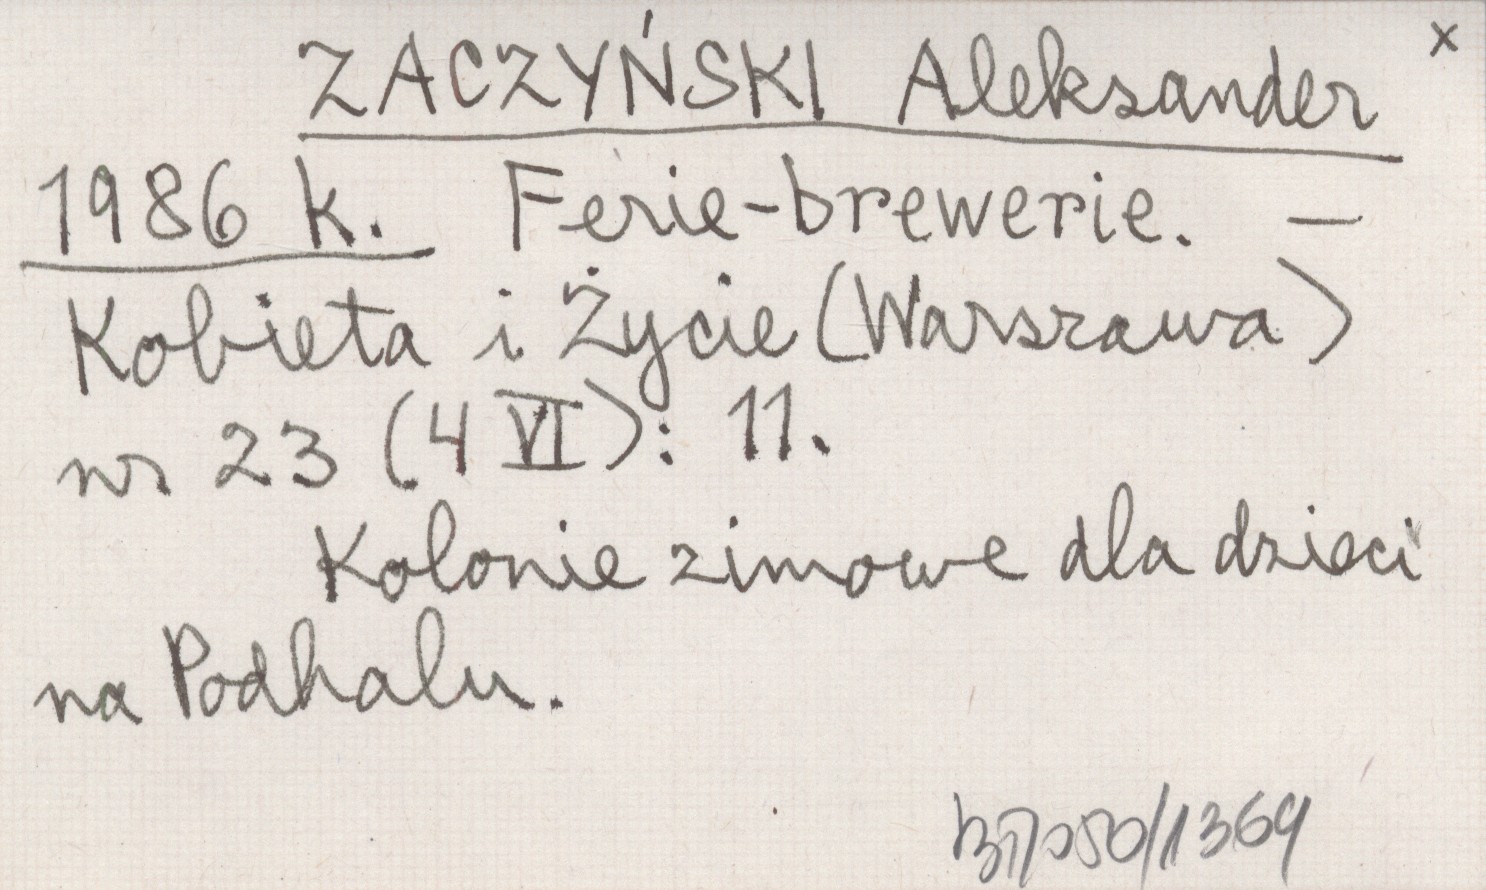 ZACZYŃSKI Aleksander x
1986 k. Ferie-brewerie. —
Kobieta i Życie (Warszawa)
nr 23 (4 VI): 11.
Kolonie zimowe dla dzieci
na Podhalu.